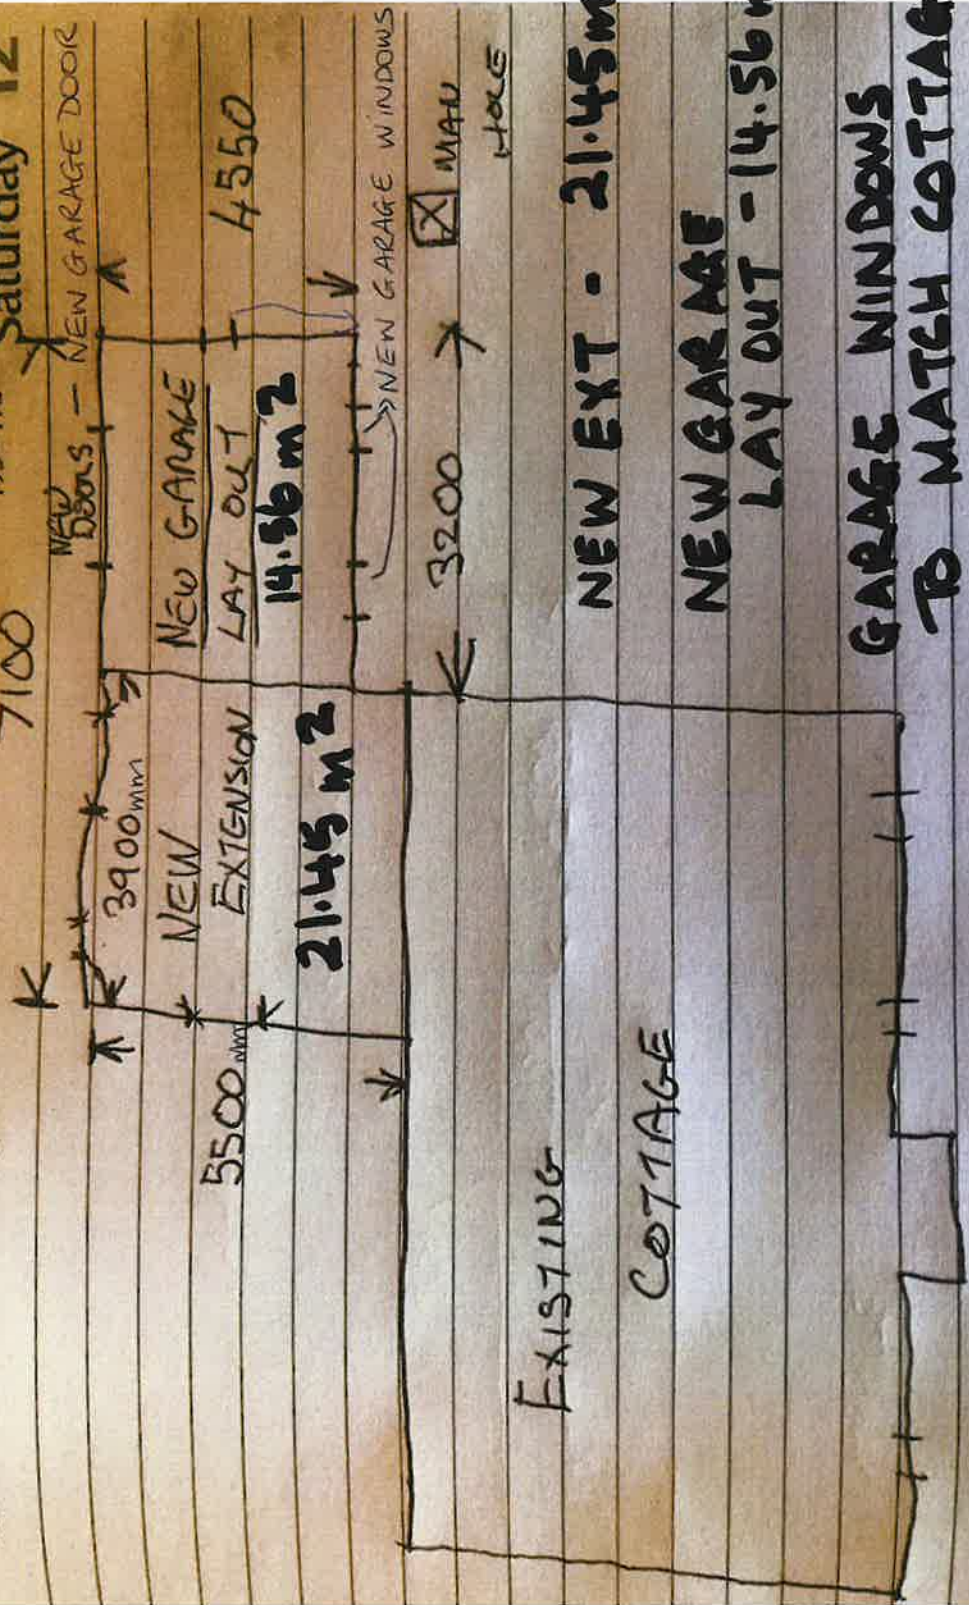 Saturday 12
7100
NEW
DOORS - NEW GARAGE DOOR
3900mm
NEW
EXTENSION
21.45 m2
5500mm
NEW GARAGE
LAY OUT
14.56 m2
4550
NEW GARAGE WINDOWS
3200
MAN
HOLE
EXISTING
COTTAGE
NEW EXT - 21.45m
NEW GARAGE
LAY OUT - 14.56
GARAGE WINDOWS
TO MATCH COTTAG